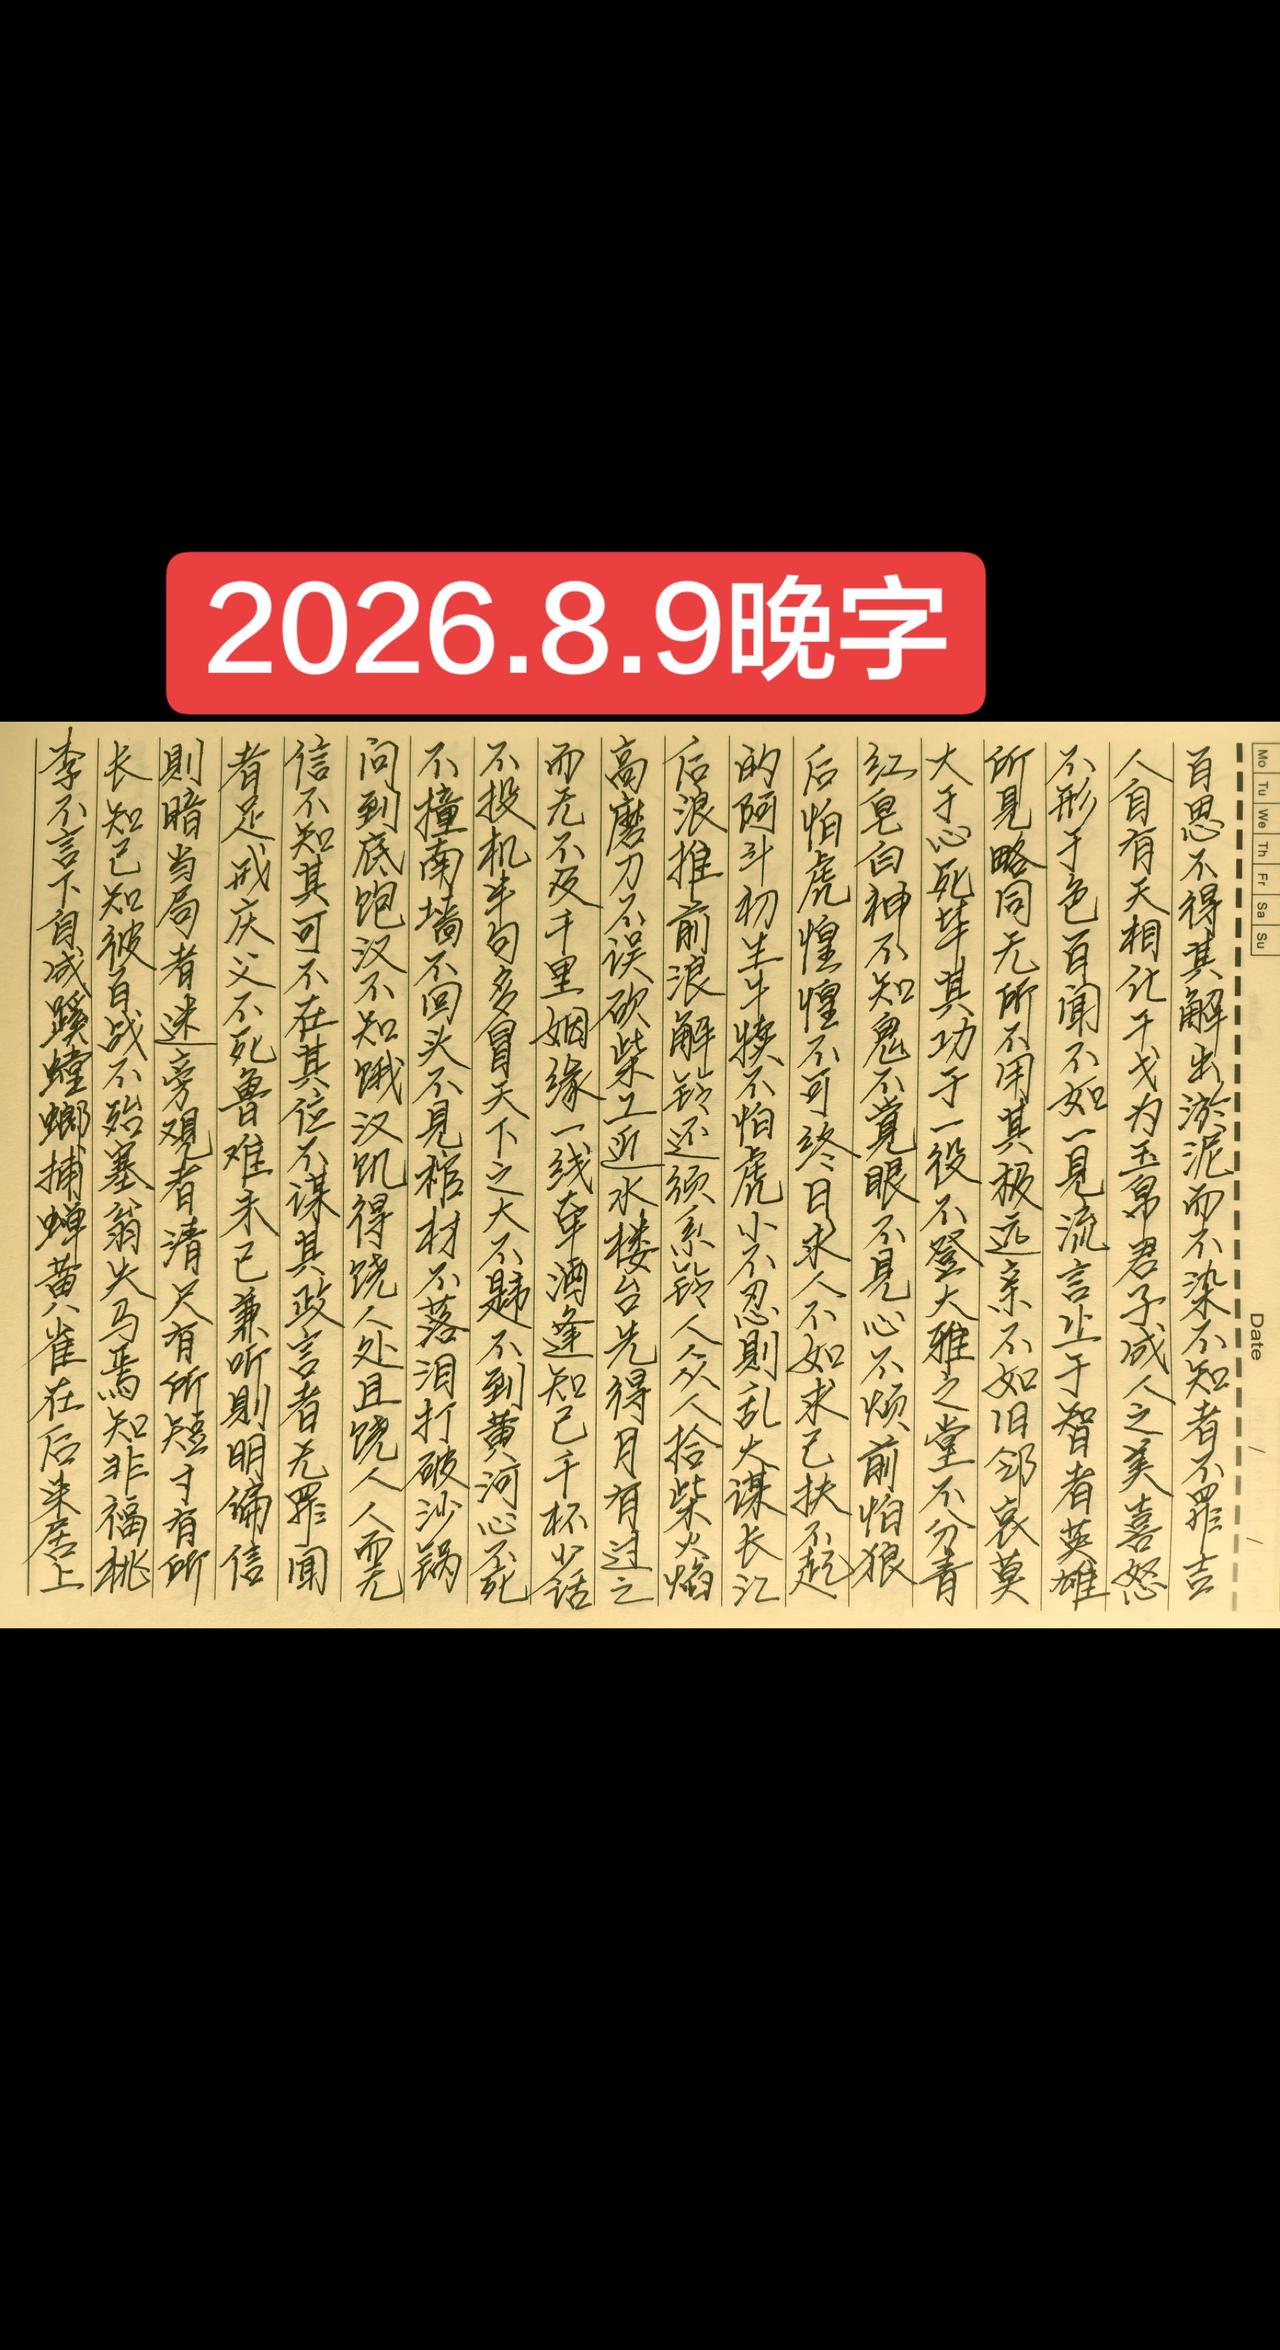 2026.8.9晚字
Mo Tu We Th Fr Sa Su
Date / /
百思不得其解出淤泥而不染不知者不罪吉
人自有天相化干戈为玉帛君子成人之美喜怒
不形于色百闻不如一見流言止于智者英雄
所見略同无所不用其极远亲不如旧邻哀莫
大于心死毕其功于一役不登大雅之堂不分青
红皂白神不知鬼不覺眼不見心不烦前怕狼
后怕虎惶惶不可终日求人不如求己扶不起
的阿斗初生牛犊不怕虎小不忍則乱大谋长江
后浪推前浪解铃还须系铃人人众人拾柴火焰
高磨刀不误砍柴工近水楼台先得月有过之
而无不及千里姻缘一线牵酒逢知己千杯少话
不投机半句多冒天下之大不韙不到黄河心不死
不撞南墙不回头不見棺材不落泪打破沙锅
问到底饱汉不知饿汉饥得饶人处且饶人人而无
信不知其可不在其位不谋其政言者无罪闻
者足戒庆父不死鲁难未已兼听則明偏信
則暗当局者迷旁观者清尺有所短寸有所
长知己知彼百战不殆塞翁失马焉知非福桃
李不言下自成蹊螳螂捕蝉黄雀在后来居上